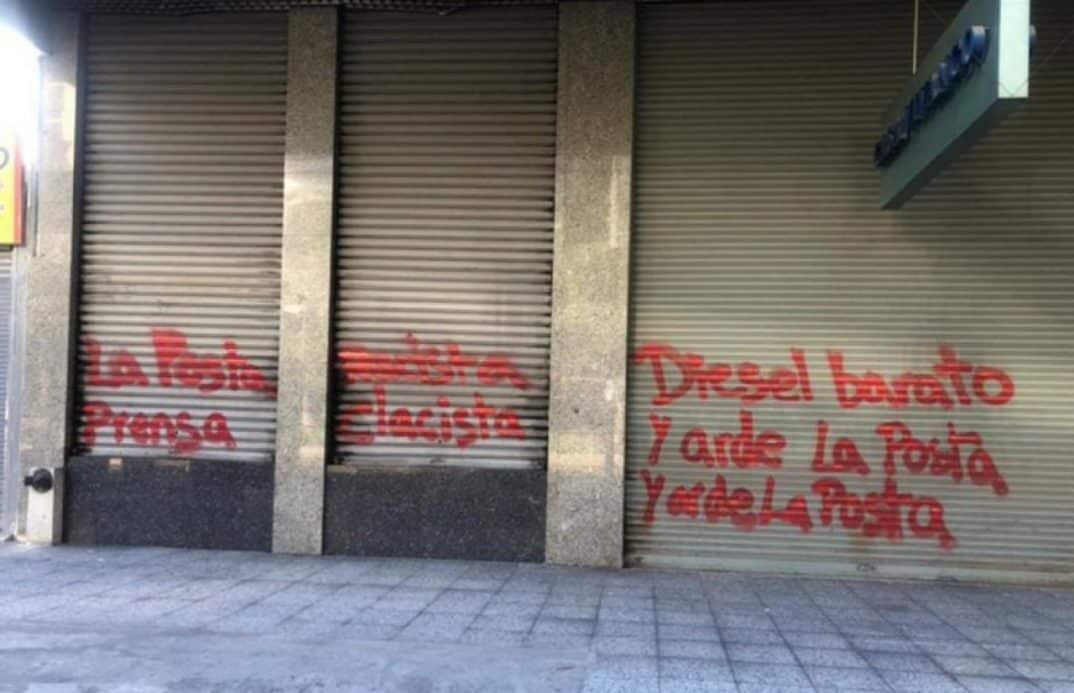 La Posta
Prensa
racista
clacista
Diesel barato
Y arde La Posta
Y arde La Posta